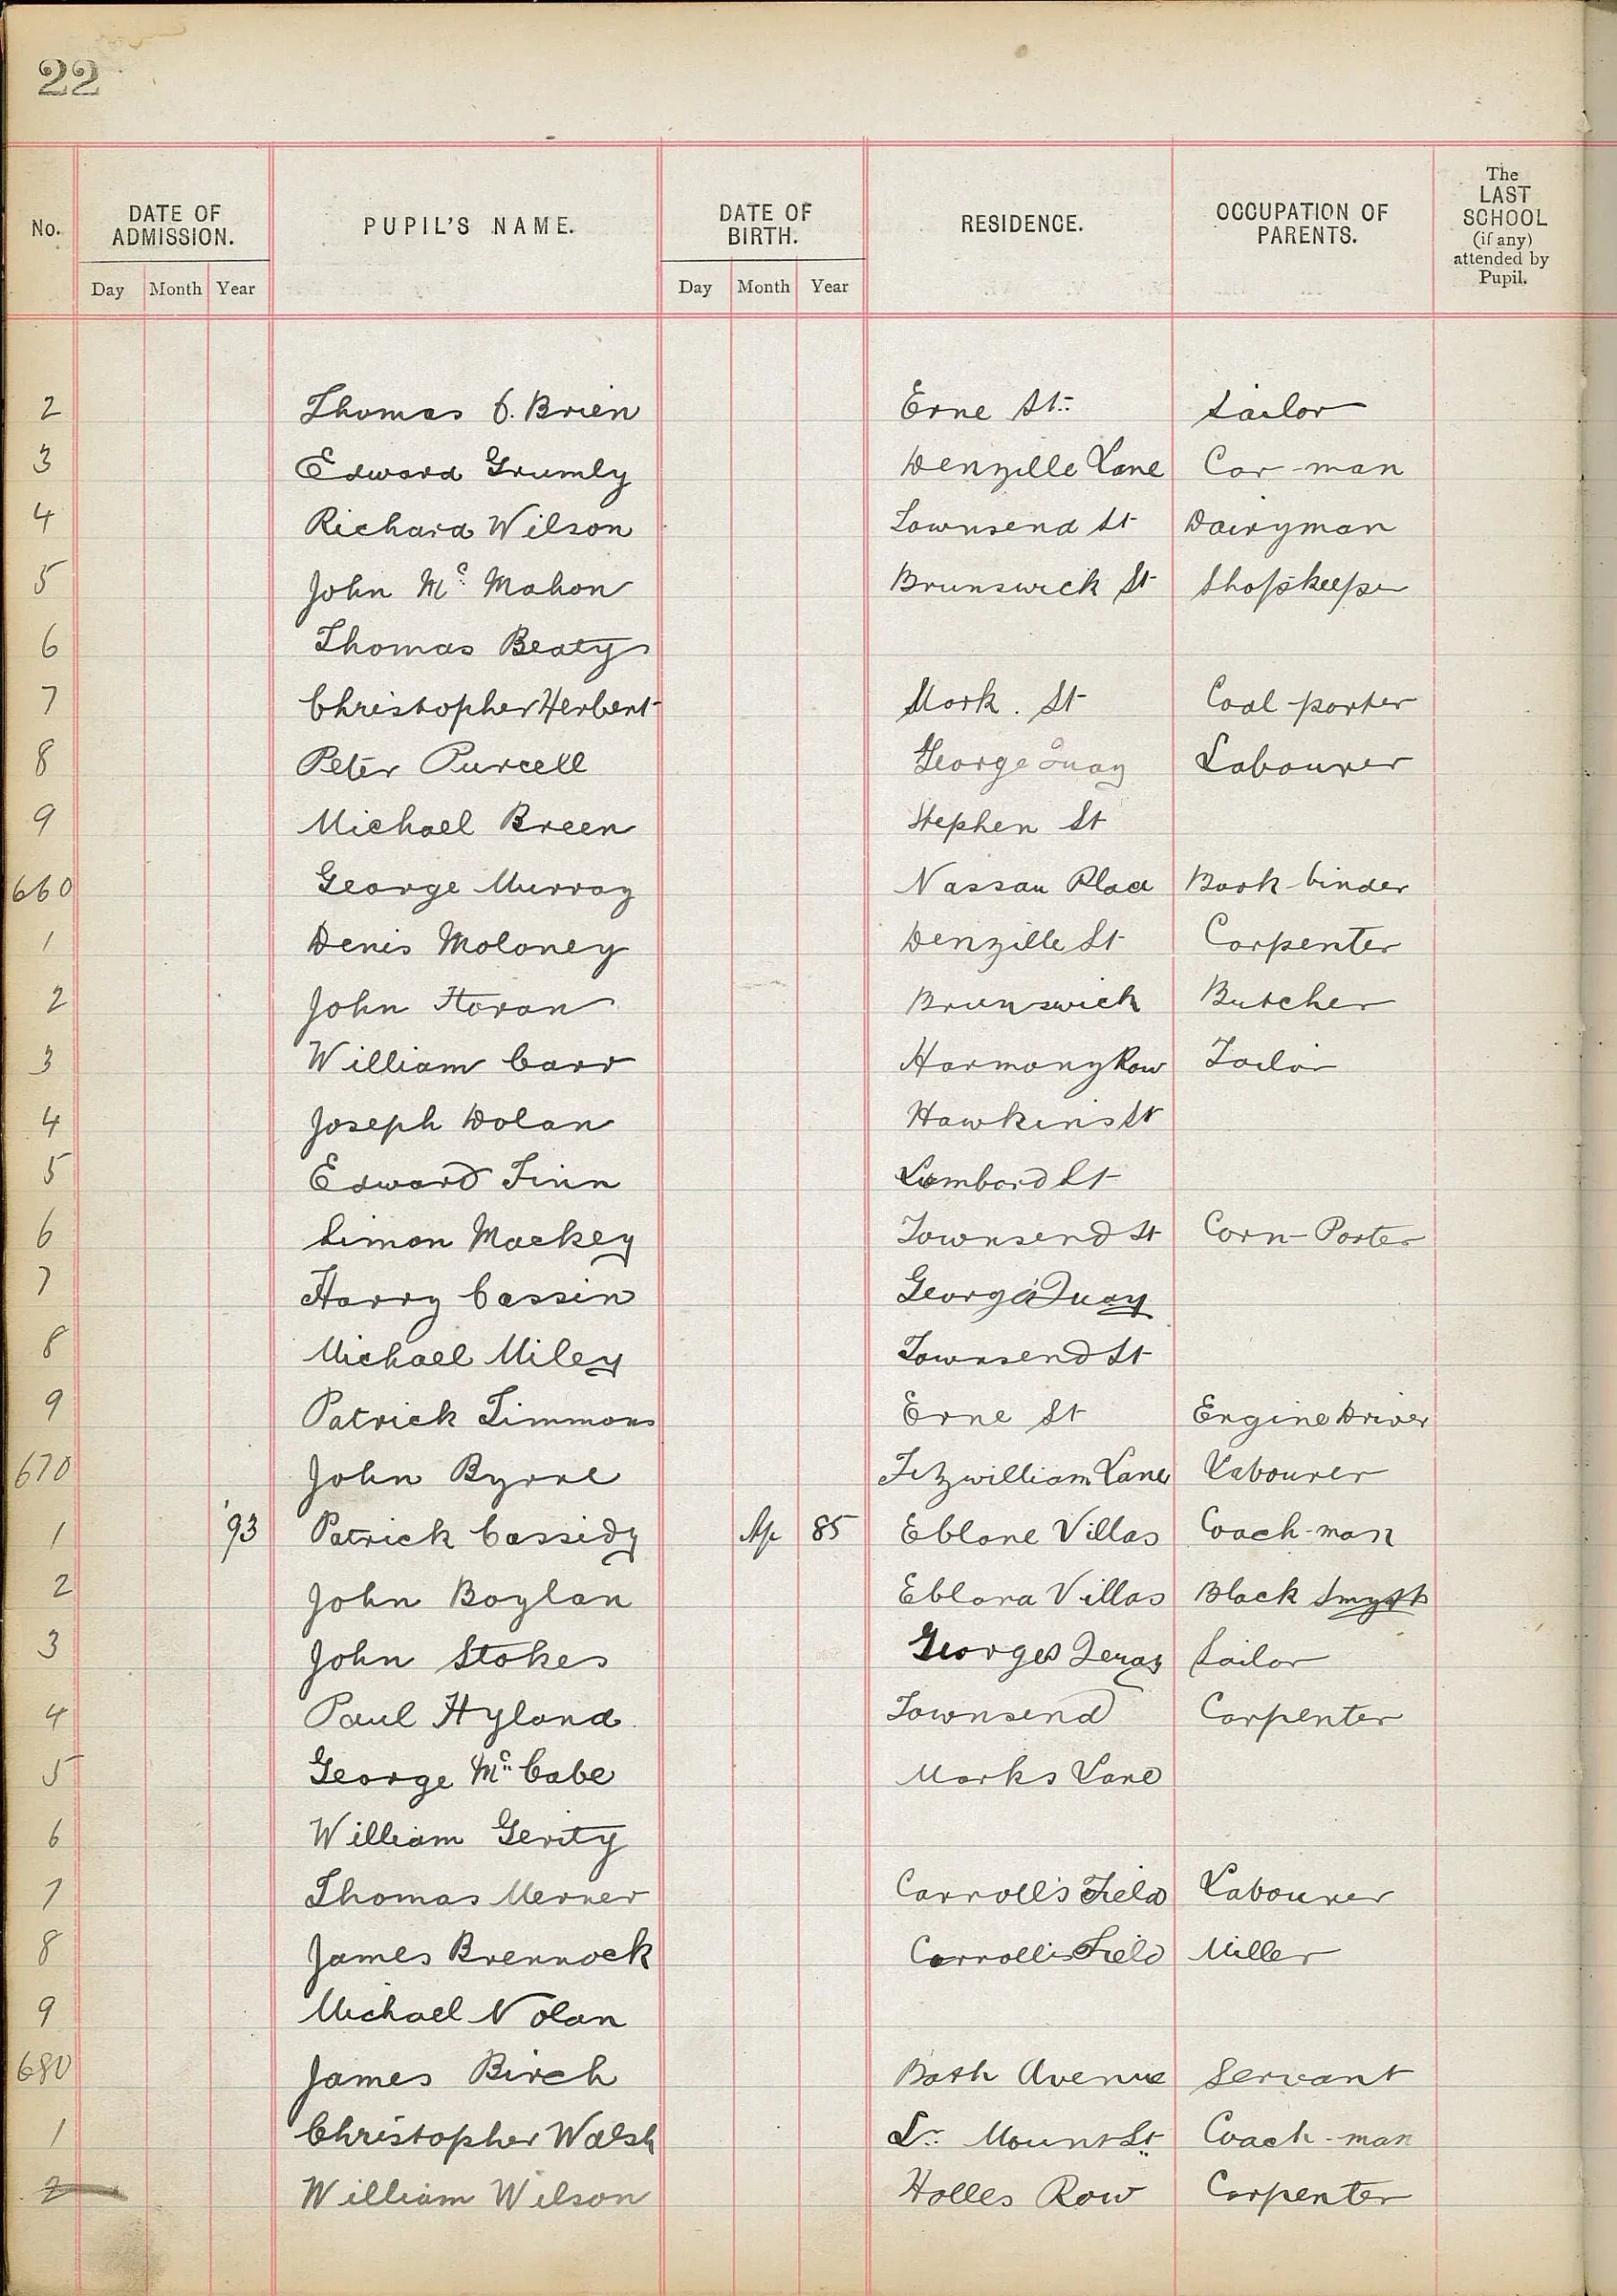 22
No. DATE OF ADMISSION. PUPIL'S NAME. DATE OF BIRTH. RESIDENCE. OCCUPATION OF PARENTS. The LAST SCHOOL (if any) attended by Pupil.
Day Month Year Day Month Year
2 Thomas O. Brien Erne St. Sailor
3 Edward Grumly Denzille Lane Car-man
4 Richard Wilson Townsend St Dairyman
5 John Mc Mahon Brunswick St Shopkeeper
6 Thomas Beaty
7 Christopher Herbert Mark. St Coal-porter
8 Peter Purcell George Quay Labourer
9 Michael Breen Stephen St
660 George Murray Nassau Place Book-binder
1 Denis Moloney Denzille St Carpenter
2 John Horan Brunswick Butcher
3 William Carr Harmony Row Tailor
4 Joseph Dolan Hawkins St
5 Edward Finn Lombard St
6 Simon Mackey Townsend St Corn-Porter
7 Harry Cassin George's Quay
8 Michael Miley Townsend St
9 Patrick Timmons Erne St Engine Driver
670 John Byrne Fitzwilliam Lane Labourer
1 '93 Patrick Cassidy Ap 85 Eblane Villas Coach-man
2 John Boylan Eblana Villas Black Smyth
3 John Stokes Georges Quay Sailor
4 Paul Hyland Townsend Carpenter
5 George Mc Cabe Marks Lane
6 William Gerity
7 Thomas Merner Carroll's Field Labourer
8 James Brennock Carroll's Field Miller
9 Michael Nolan
680 James Birch Bath Avenue Servant
1 Christopher Walsh Lr. Mount St. Coach-man
2 William Wilson Holles Row Carpenter